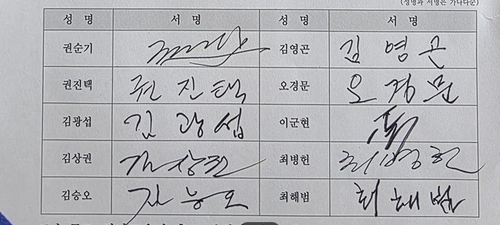 (성명과 서명은 가나다순)
성 명 서 명 성 명 서 명
권순기 김영곤 김영곤
권진택 권진택 오경문 오경문
김광섭 김광섭 이군현
김상권 김상권 최병헌 최병헌
김승오 김승오 최해범 최해범